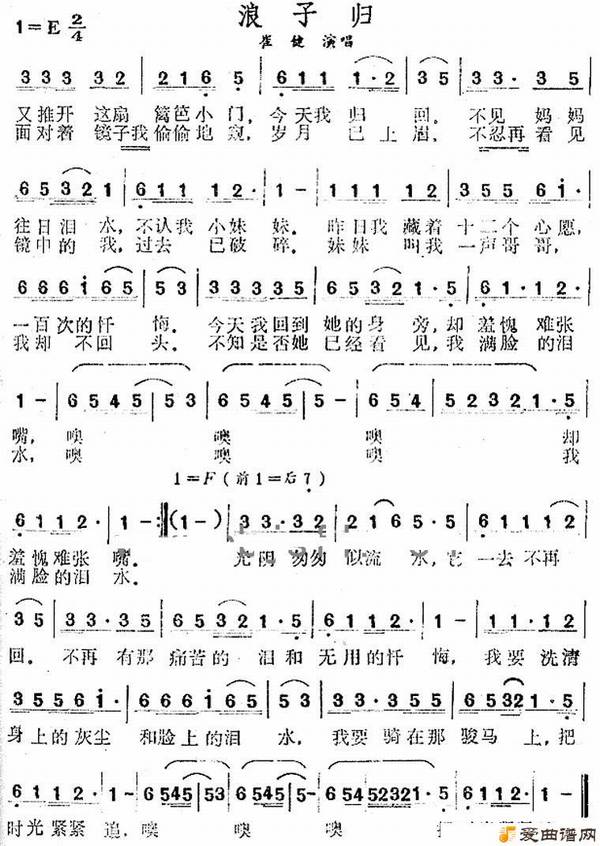 浪子归
1=E 2/4
崔健 演唱
3 3 3 3 2 | 2 1 6 5 | 6 1 1 1·2 | 3 5 | 3 3 3 3
又推开 这扇 篱笆小门，今天我 归 回。不见 妈妈
面对着 镜子我 偷偷地 窥，岁月 已上 眉，不忍再 看见
6 5 3 2 1 | 6 1 1 1 2· | 1 - | 1 1 1 1 2· | 3 5 5 5 6 i·
往日泪 水，不认我 小妹 妹。昨日我 藏着 十二个 心愿，
镜中的 我，过去 已破 碎。妹妹 叫我 一声哥 哥，
6 6 6 i 6 5 | 5 3 | 3 3 3 3 2 1 | 6 5 3 2 1·5 | 6 1 1 1 2·
一百次的忏 悔。今天我回到 她的身 旁，却 羞愧 难张
我却 不回 头。不知是否她 已经看 见，我 满脸 的泪
1 - | 6 5 4 5 | 5 3 | 6 5 4 5 | 5 - | 6 5 4 | 5 2 3 2 1·5
嘴，噢 噢 噢 却
水，噢 噢 噢 我
1=F（前1=后7）
6 1 1 2· | 1 - :‖ (1 -) | 3 3·3 2 | 2 1 6 5 5 | 6 1 1 1 2
羞愧难张 嘴。 光阴 匆匆 似流 水，它 一去 不再
满脸的泪 水。
3 5 | 3 3·3 5 | 6 5 3 5 3 2 1·5 | 6 1 1 2· | 1 - | 1 1·1 2
回。不再 有那 痛苦的 泪和 无用的忏 悔，我要 洗清
3 5 5 6 i· | 6 6 6 i 6 5 | 5 3 | 3 3·3 2 1 | 6 5 3 2 1·5
身上的 灰尘 和脸上的泪 水，我要 骑在那 骏马 上，把
6 1 1 2· | 1 - | 6 5 4 5 | 5 3 | 6 5 4 5 | 5 - | 6 5 4 5 2 3 2 1·5 | 6 1 1 2· | 1 - ‖
时光 紧紧 追，噢 噢 噢
爱曲谱网